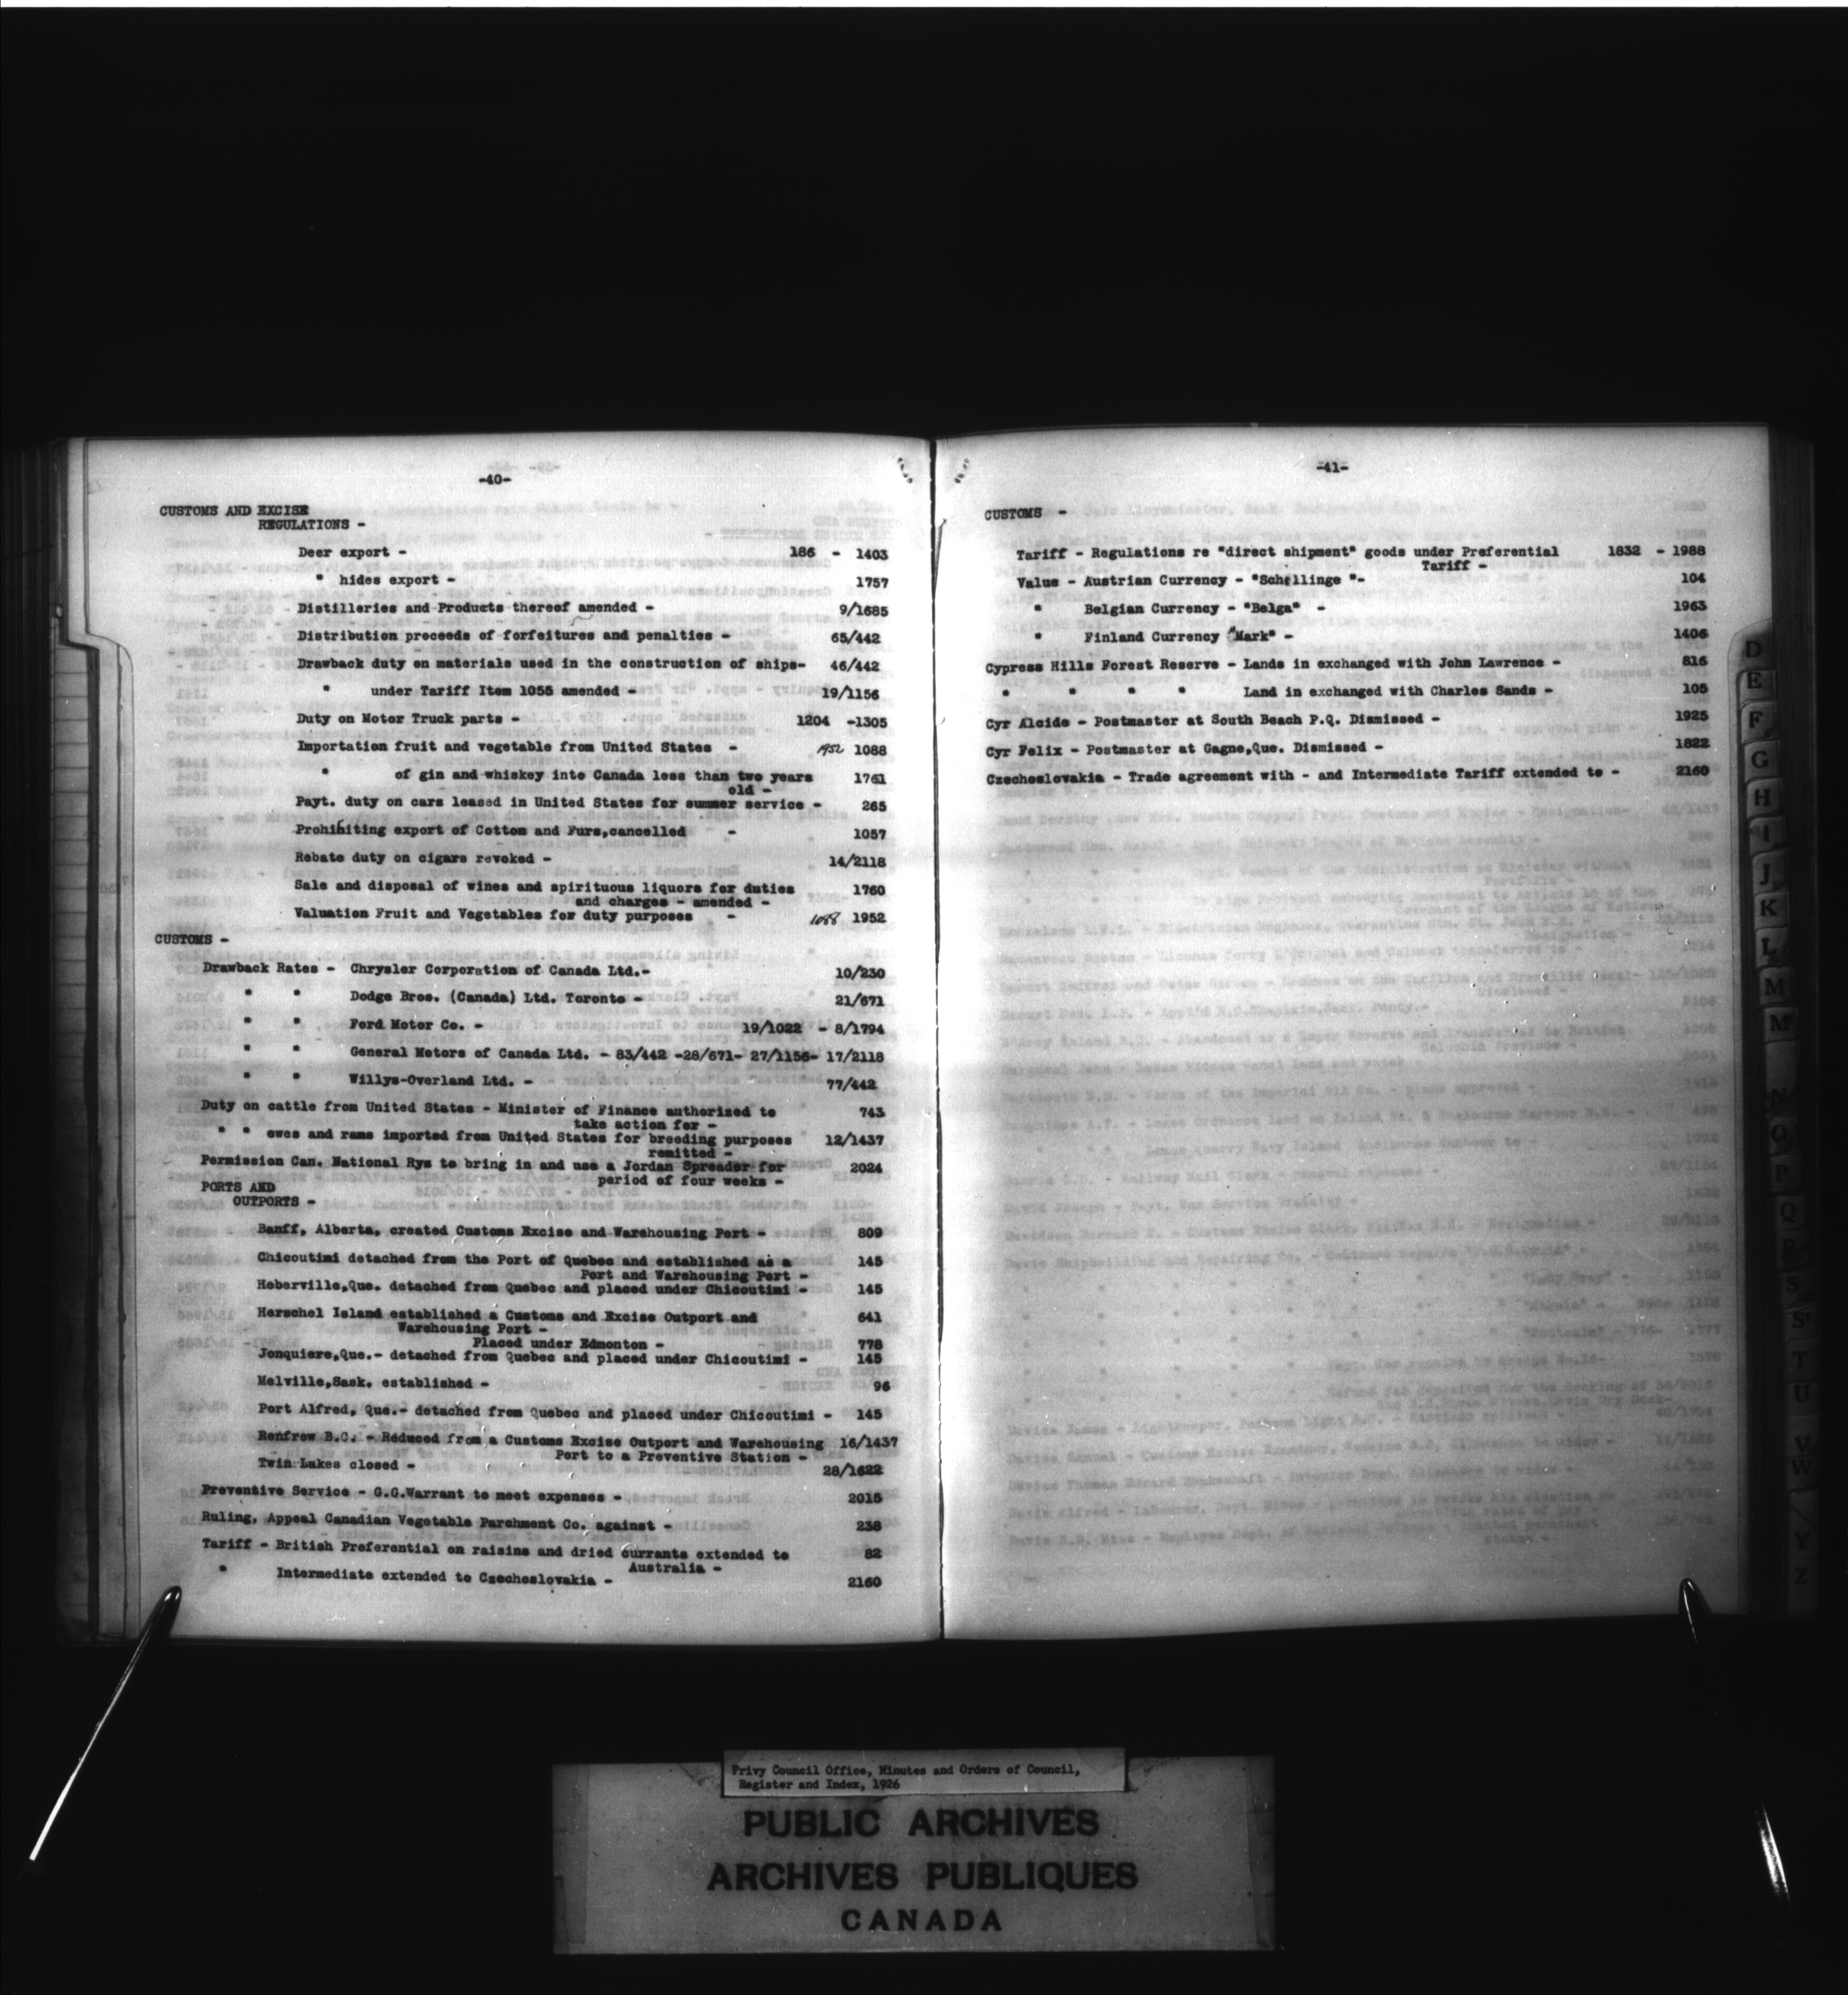 -40-
CUSTOMS AND EXCISE
REGULATIONS -
Deer export - 186 - 1403
" hides export - 1757
Distilleries and Products thereof amended - 9/1685
Distribution proceeds of forfeitures and penalties - 65/442
Drawback duty on materials used in the construction of ships- 46/442
" under Tariff Item 1055 amended - 19/1156
Duty on Motor Truck parts - 1204 -1305
Importation fruit and vegetable from United States - 1952 1088
" of gin and whiskey into Canada less than two years 1761
old -
Payt. duty on cars leased in United States for summer service - 265
Prohibiting export of Cotton and Furs,cancelled - 1057
Rebate duty on cigars revoked - 14/2118
Sale and disposal of wines and spirituous liquors for duties 1760
and charges - amended -
Valuation Fruit and Vegetables for duty purposes - 1088 1952
CUSTOMS -
Drawback Rates - Chrysler Corporation of Canada Ltd.- 10/230
" " Dodge Bros. (Canada) Ltd. Toronto - 21/671
" " Ford Motor Co. - 19/1022 - 8/1794
" " General Motors of Canada Ltd. - 83/442 -28/671- 27/1156- 17/2118
" " Willys-Overland Ltd. - 77/442
Duty on cattle from United States - Minister of Finance authorized to 743
take action for -
" " ewes and rams imported from United States for breeding purposes 12/1437
remitted -
Permission Can. National Rys to bring in and use a Jordan Spreader for 2024
period of four weeks -
PORTS AND
OUTPORTS -
Banff, Alberta, created Customs Excise and Warehousing Port - 809
Chicoutimi detached from the Port of Quebec and established as a 145
Port and Warehousing Port -
Heberville,Que. detached from Quebec and placed under Chicoutimi - 145
Herschel Island established a Customs and Excise Outport and 641
Warehousing Port -
Placed under Edmonton - 778
Jonquiere,Que.- detached from Quebec and placed under Chicoutimi - 145
Melville,Sask. established - 96
Port Alfred, Que.- detached from Quebec and placed under Chicoutimi - 145
Renfrew B.C. - Reduced from a Customs Excise Outport and Warehousing 16/1437
Port to a Preventive Station -
Twin Lakes closed - 28/1622
Preventive Service - G.G.Warrant to meet expenses - 2015
Ruling, Appeal Canadian Vegetable Parchment Co. against - 238
Tariff - British Preferential on raisins and dried currants extended to 82
Australia -
" Intermediate extended to Czechoslovakia - 2160
-41-
CUSTOMS -
Tariff - Regulations re "direct shipment" goods under Preferential 1832 - 1988
Tariff -
Value - Austrian Currency - "Schellinge "- 104
" Belgian Currency - "Belga" - 1963
" Finland Currency "Mark" - 1406
Cypress Hills Forest Reserve - Lands in exchanged with John Lawrence - 816
" " " " Land in exchanged with Charles Sands - 105
Cyr Alcide - Postmaster at South Beach P.Q. Dismissed - 1925
Cyr Felix - Postmaster at Gagne,Que. Dismissed - 1822
Czechoslovakia - Trade agreement with - and Intermediate Tariff extended to - 2160
D
E
F
G
H
I
J
K
L
M
M
N
O
P
Q
R
S
S
T
U
V
W
Y
Z
Privy Council Office, Minutes and Orders of Council,
Register and Index, 1926
PUBLIC ARCHIVES
ARCHIVES PUBLIQUES
CANADA